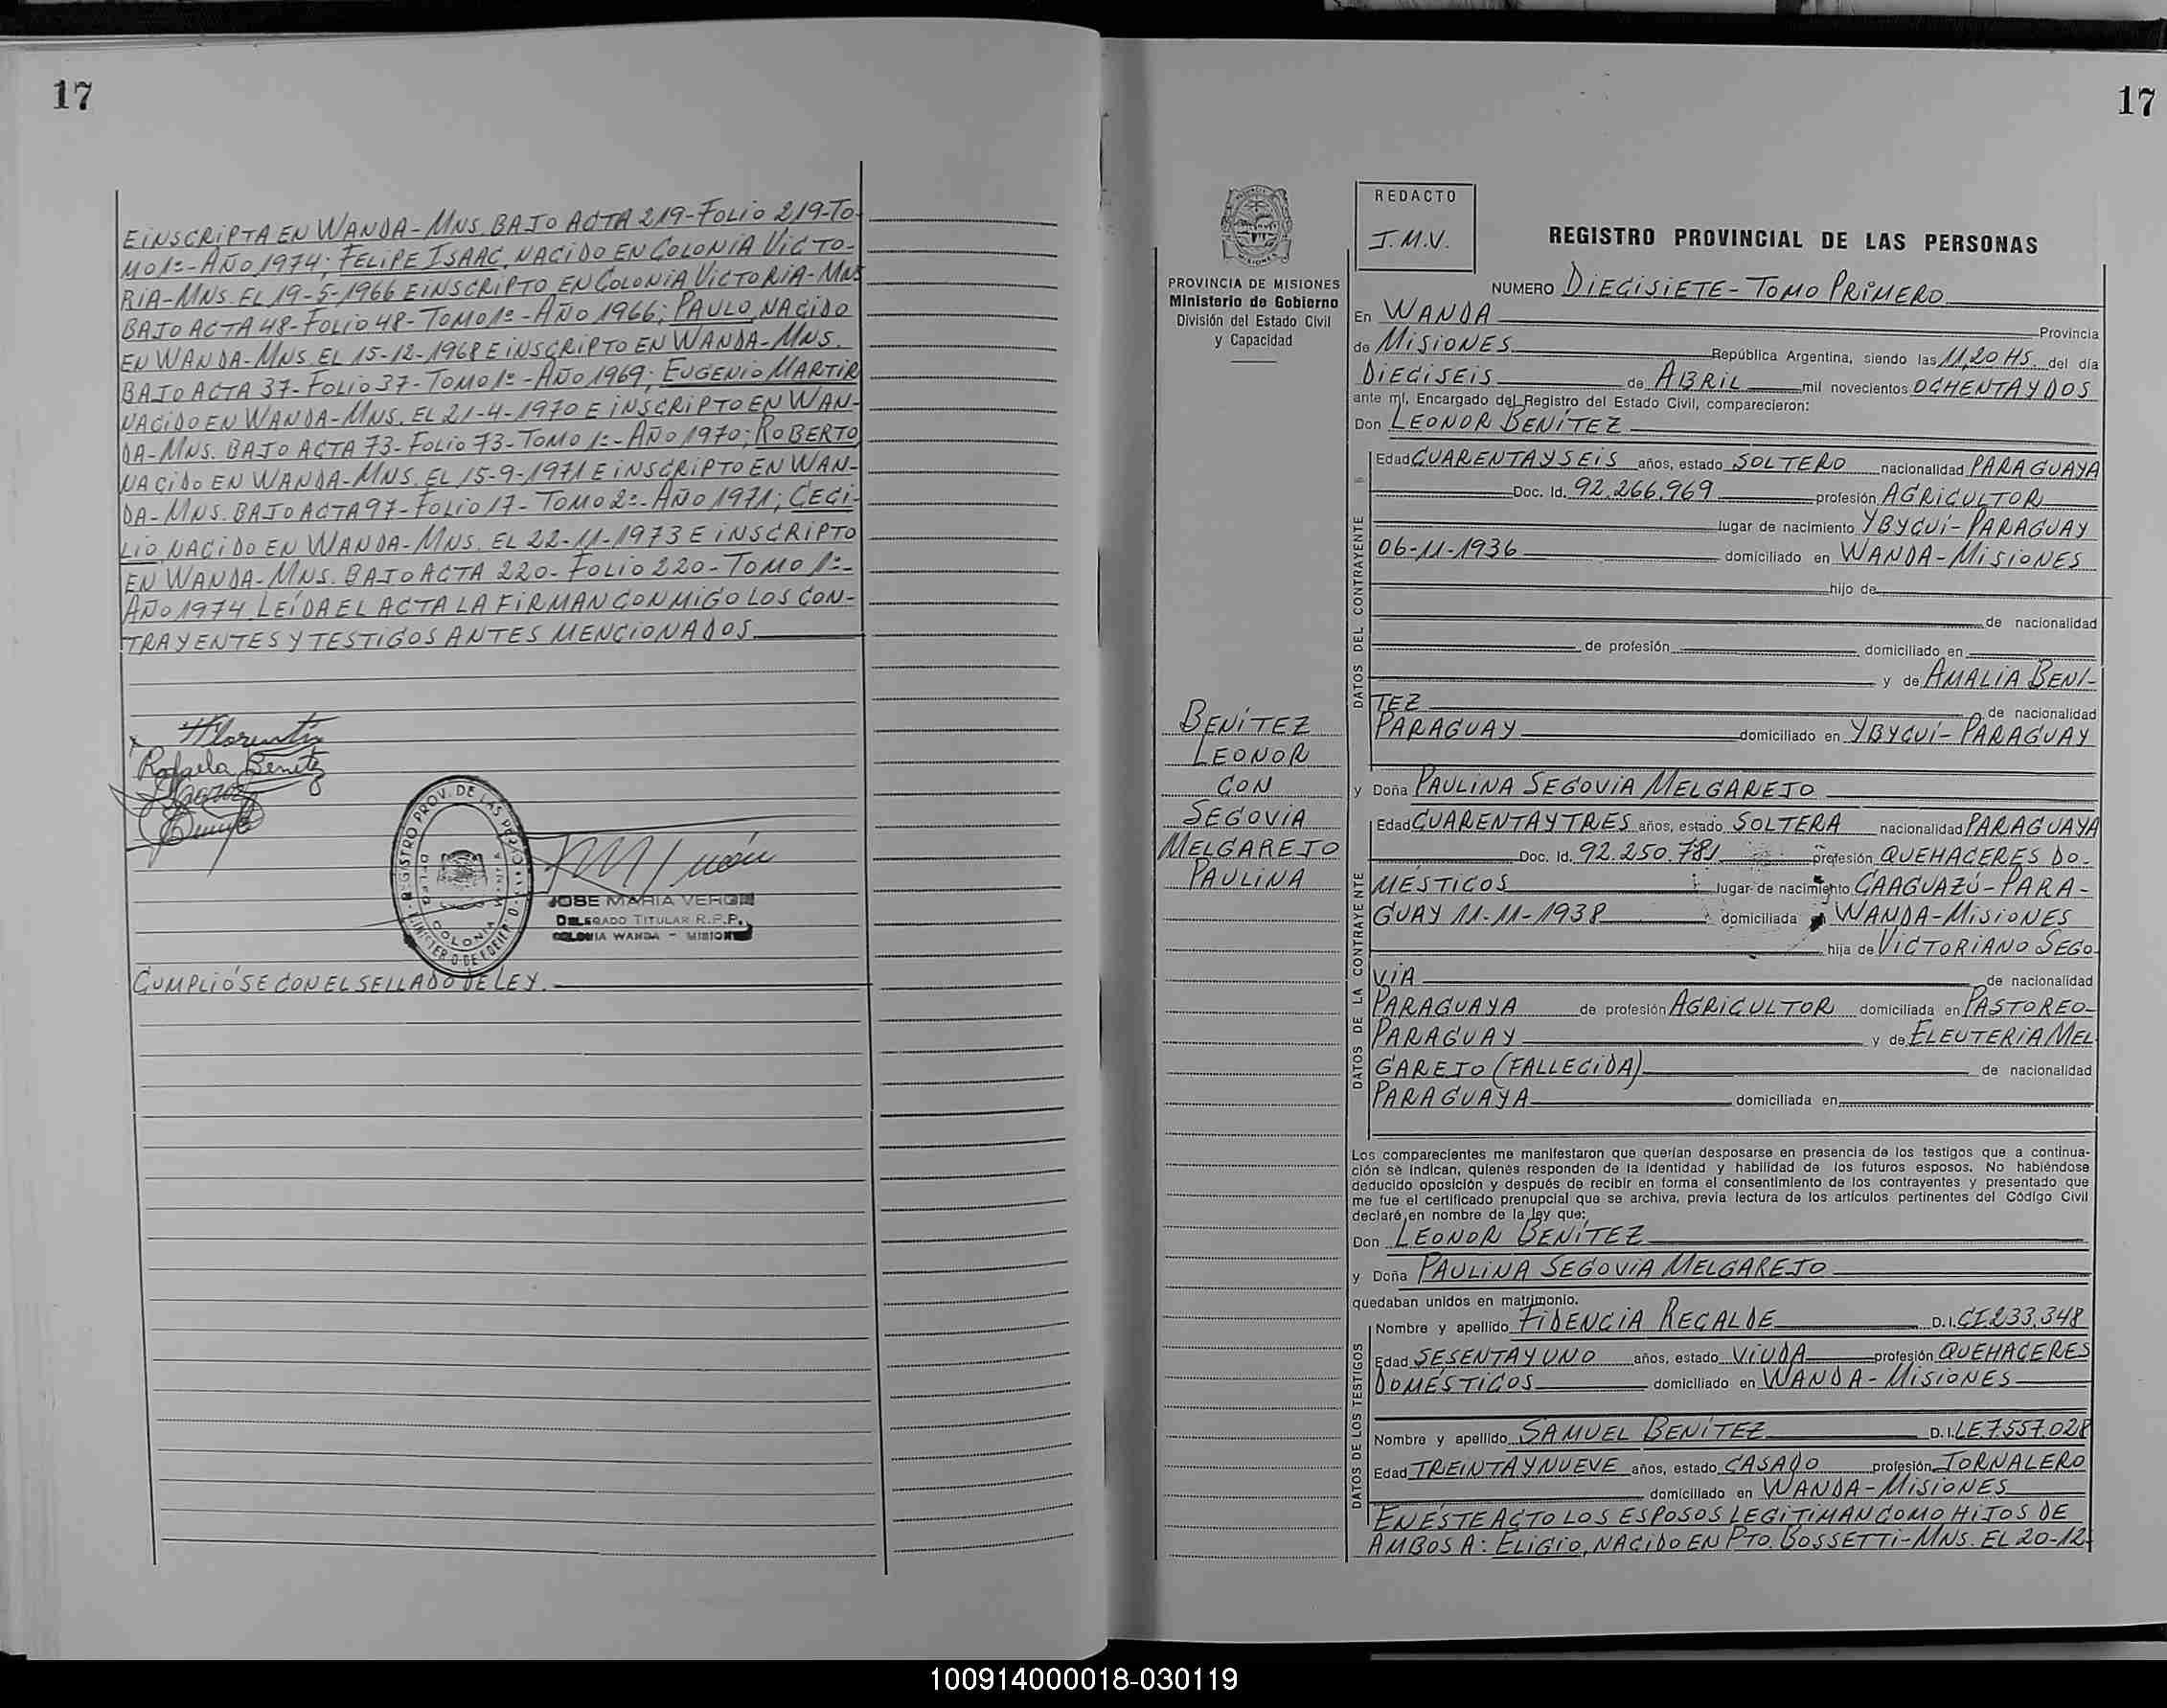 17
EINSCRIPTA EN WANDA-MNS. BAJO ACTA 219-FOLIO 219-TO-
MO 1º-AÑO 1974; FELIPE ISAAC, NACIDO EN COLONIA VICTO-
RIA-MNS. EL 19-5-1966 E INSCRIPTO EN COLONIA VICTORIA-MNS
BAJO ACTA 48-FOLIO 48-TOMO 1º-AÑO 1966; PAULO, NACIDO
EN WANDA-MNS. EL 15-12-1968 E INSCRIPTO EN WANDA-MNS.
BAJO ACTA 37-FOLIO 37-TOMO 1º-AÑO 1969; EUGENIO MARTIR
NACIDO EN WANDA-MNS. EL 21-4-1970 E INSCRIPTO EN WAN-
DA-MNS. BAJO ACTA 73-FOLIO 73-TOMO 1º-AÑO 1970; ROBERTO,
NACIDO EN WANDA-MNS. EL 15-9-1971 E INSCRIPTO EN WAN-
DA-MNS. BAJO ACTA 97-FOLIO 17-TOMO 2º-AÑO 1971; CECI-
LIO, NACIDO EN WANDA-MNS. EL 22-11-1973 E INSCRIPTO
EN WANDA-MNS. BAJO ACTA 220-FOLIO 220-TOMO 1º-
AÑO 1974. LEÍDA EL ACTA LA FIRMAN CONMIGO LOS CON-
TRAYENTES Y TESTIGOS ANTES MENCIONADOS.
Rafaela Benitez
REGISTRO PROV. DE LAS
COLONIA
JOSE MARIA VERON
DELEGADO TITULAR R.P.P.
COLONIA WANDA - MISIONES
CUMPLIÓSE CON EL SELLADO DE LEY.
17
PROVINCIA DE MISIONES
Ministerio de Gobierno
División del Estado Civil
y Capacidad
BENÍTEZ
LEONOR
CON
SEGOVIA
MELGAREJO
PAULINA
REDACTO
J.M.V.
REGISTRO PROVINCIAL DE LAS PERSONAS
NUMERO DIECISIETE-TOMO PRIMERO
En WANDA Provincia
de MISIONES República Argentina, siendo las 11,20 HS. del día
DIECISEIS de ABRIL mil novecientos OCHENTA Y DOS
ante mí, Encargado del Registro del Estado Civil, comparecieron:
Don LEONOR BENÍTEZ
DATOS DEL CONTRAYENTE
Edad CUARENTA Y SEIS años, estado SOLTERO nacionalidad PARAGUAYA
Doc. Id. 92.266.969 profesión AGRICULTOR
lugar de nacimiento YBYCUÍ-PARAGUAY
06-11-1936 domiciliado en WANDA-MISIONES
hijo de
de nacionalidad
de profesión domiciliado en
y de AMALIA BENI-
TEZ de nacionalidad
PARAGUAY domiciliado en YBYCUÍ-PARAGUAY
y Doña PAULINA SEGOVIA MELGAREJO
DATOS DE LA CONTRAYENTE
Edad CUARENTA Y TRES años, estado SOLTERA nacionalidad PARAGUAYA
Doc. Id. 92.250.781 profesión QUEHACERES DO-
MÉSTICOS lugar de nacimiento CAAGUAZÚ-PARA-
GUAY 11-11-1938 domiciliada WANDA-MISIONES
hija de VICTORIANO SEGO-
VIA de nacionalidad
PARAGUAYA de profesión AGRICULTOR domiciliada en PASTOREO-
PARAGUAY y de ELEUTERIA MEL-
GAREJO (FALLECIDA) de nacionalidad
PARAGUAYA domiciliada en
Los comparecientes me manifestaron que querían desposarse en presencia de los testigos que a continua-
ción se indican, quienes responden de la identidad y habilidad de los futuros esposos. No habiéndose
deducido oposición y después de recibir en forma el consentimiento de los contrayentes y presentado que
me fue el certificado prenupcial que se archiva, previa lectura de los artículos pertinentes del Código Civil
declaré en nombre de la ley que:
Don LEONOR BENÍTEZ
y Doña PAULINA SEGOVIA MELGAREJO
quedaban unidos en matrimonio.
DATOS DE LOS TESTIGOS
Nombre y apellido FIDENCIA RECALDE D.I. CI 233.348
Edad SESENTA Y UNO años, estado VIUDA profesión QUEHACERES
DOMÉSTICOS domiciliado en WANDA-MISIONES
Nombre y apellido SAMUEL BENÍTEZ D.I. LE 7.557.028
Edad TREINTA Y NUEVE años, estado CASADO profesión JORNALERO
domiciliado en WANDA-MISIONES
EN ÉSTE ACTO LOS ESPOSOS LEGITIMAN COMO HIJOS DE
AMBOS A: ELIGIO, NACIDO EN PTO. BOSSETTI-MNS. EL 20-12-
100914000018-030119